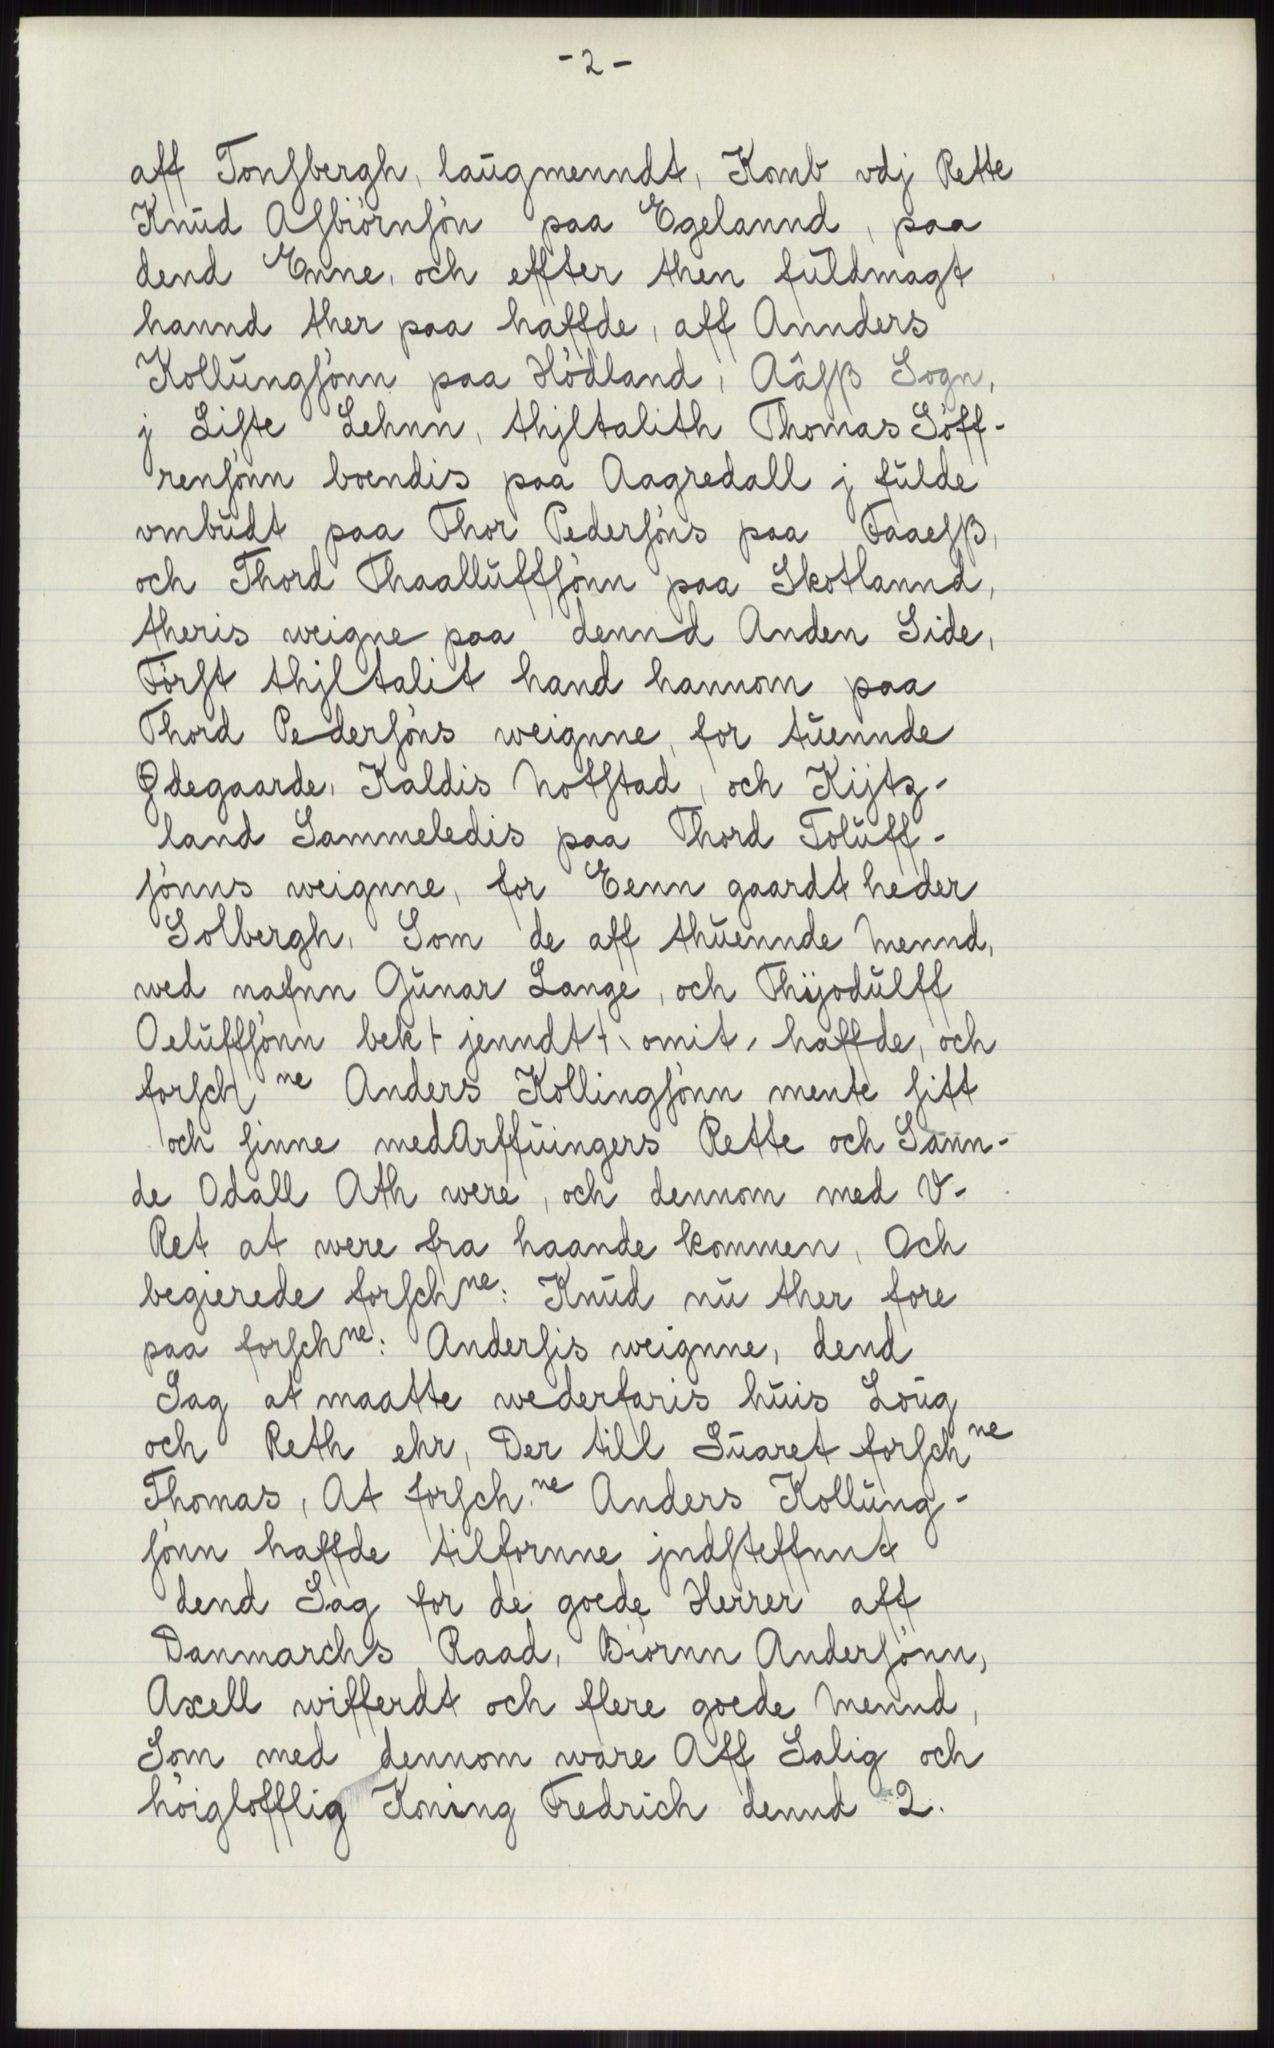 - 2 -
aff Tonsbergh, laugmenndt, Komb vdj Rette
Knŭd Asbiörnsön paa Egelannd, paa
dend Enne, och effter then fŭldmagt
hannd ther paa haffde, aff Annders
Kollŭngsönn paa Hödland, Aâsß Sogn,
j Liste Lehnn, thjltalith Thomas Söff-
rensönn boendis paa Aagredall j fŭlde
vmbŭdt paa Thor Pedersöns paa Faaesß,
och Thord Thaallŭffsönn paa Skotlannd,
theris weigne paa dennd Anden Side,
Först thjltalit hand hannom paa
Thord Pedersöns weignne, for tŭennde
Ødegaarde, Kaldis Notstad, och Kijtz-
land Sammeledis paa Thord Tolŭff-
sönns weignne, for Eenn gaardt heder
Solbergh, Som de aff thŭennde Mennd,
wed nafnn Gŭnar Lange, och Thijodŭlff
Oelŭffsönn bek + jenndt + \ omit / haffde, och
forsch ne Anders Kollingsönn mente sitt
och sinne medArffŭingers Rette och Sann-
de Odall Ath were, och dennom med V-
Ret at were fra haande kommen, Och
begierede forsch ne: Knŭd nŭ ther fore
paa forsch ne: Andersis weignne, dend
Sag at maatte wederfaris hŭis Loŭg
och Reth ehr, Der till Sŭaret forsch ne
Thomas, At forsch. ne Anders Kollŭng-
sönn haffde tilfornne jndsteffnnt
dend Sag for de goede Herrer aff
Danmarchs Raad, Biörnn Andersönn,
Axell wifferdt och flere goede Mennd,
Som med dennom ware Aff Salig och
höiglofflig Koning Fredrich dennd 2.